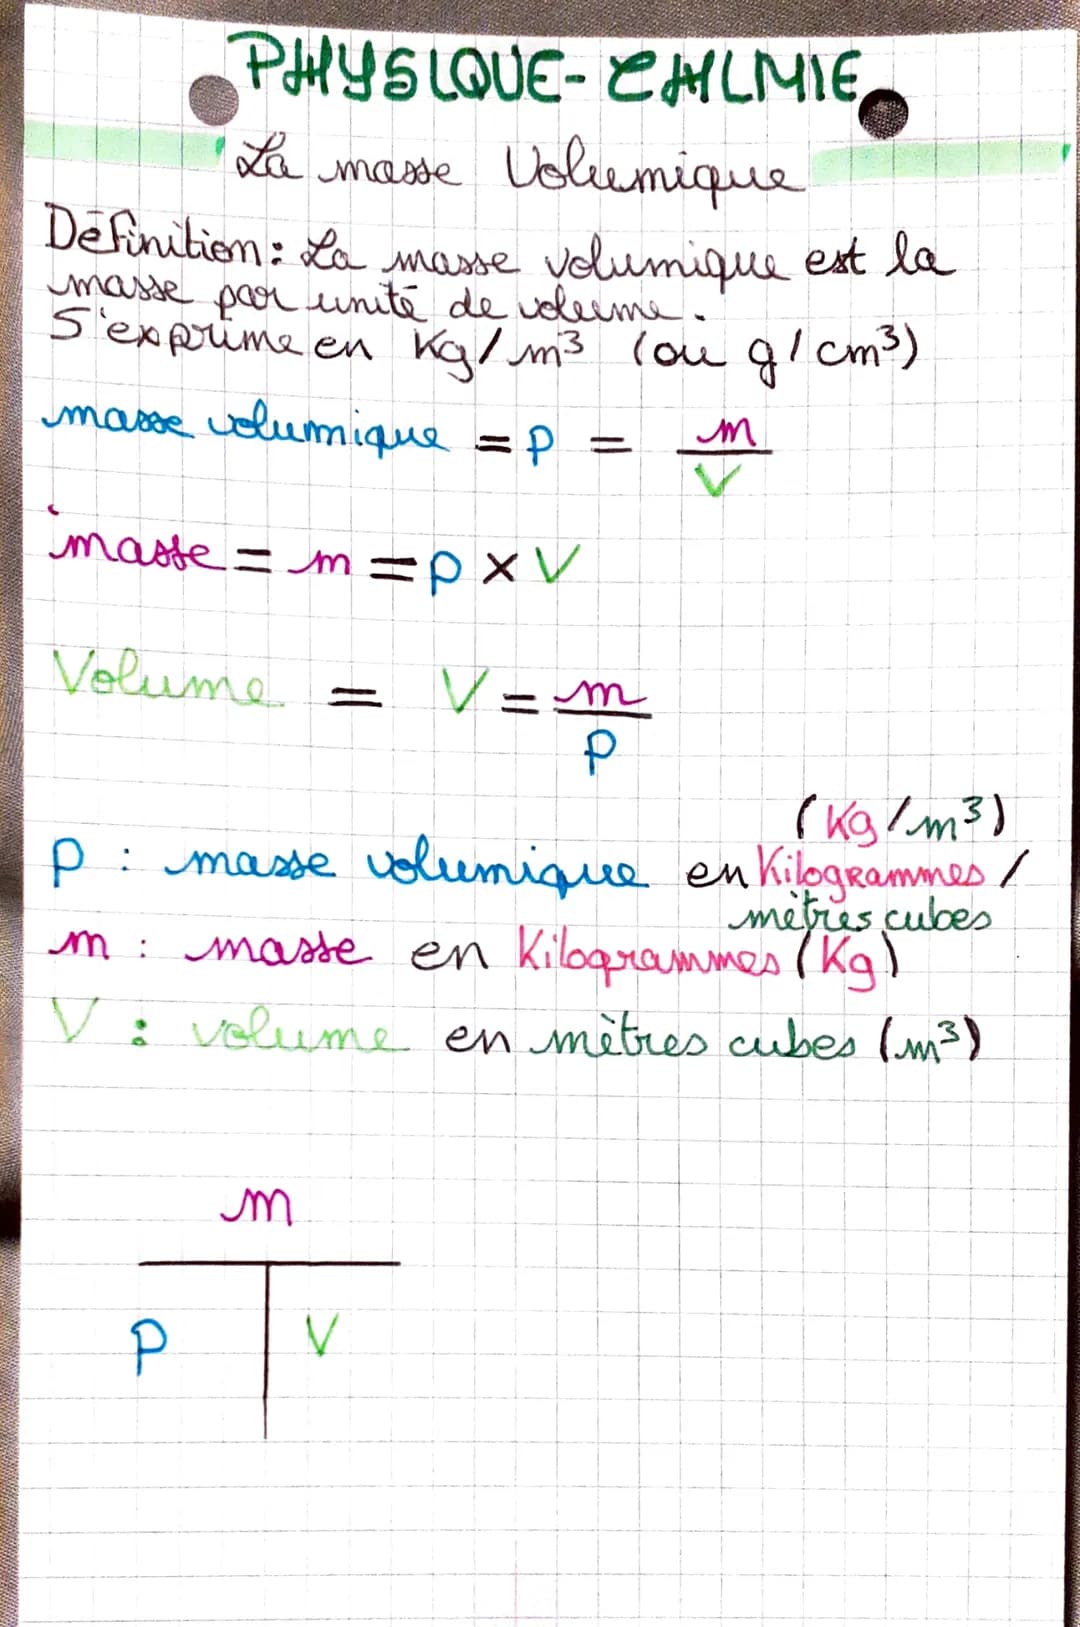 PHYSIQUE-CHIMIE
La masse Volumique
Définition: La masse volumique est la
masse par unité de volume.
S'exprime en Kg/m³ (ou g/cm³)
masse volumique = p = m/V
masse = m = p × V
Volume = V = m/p
(Kg/m³)
p : masse volumique en Kilogrammes/
mètres cubes
m : masse en Kilogrammes (Kg)
V : volume en mètres cubes (m³)
m
p V